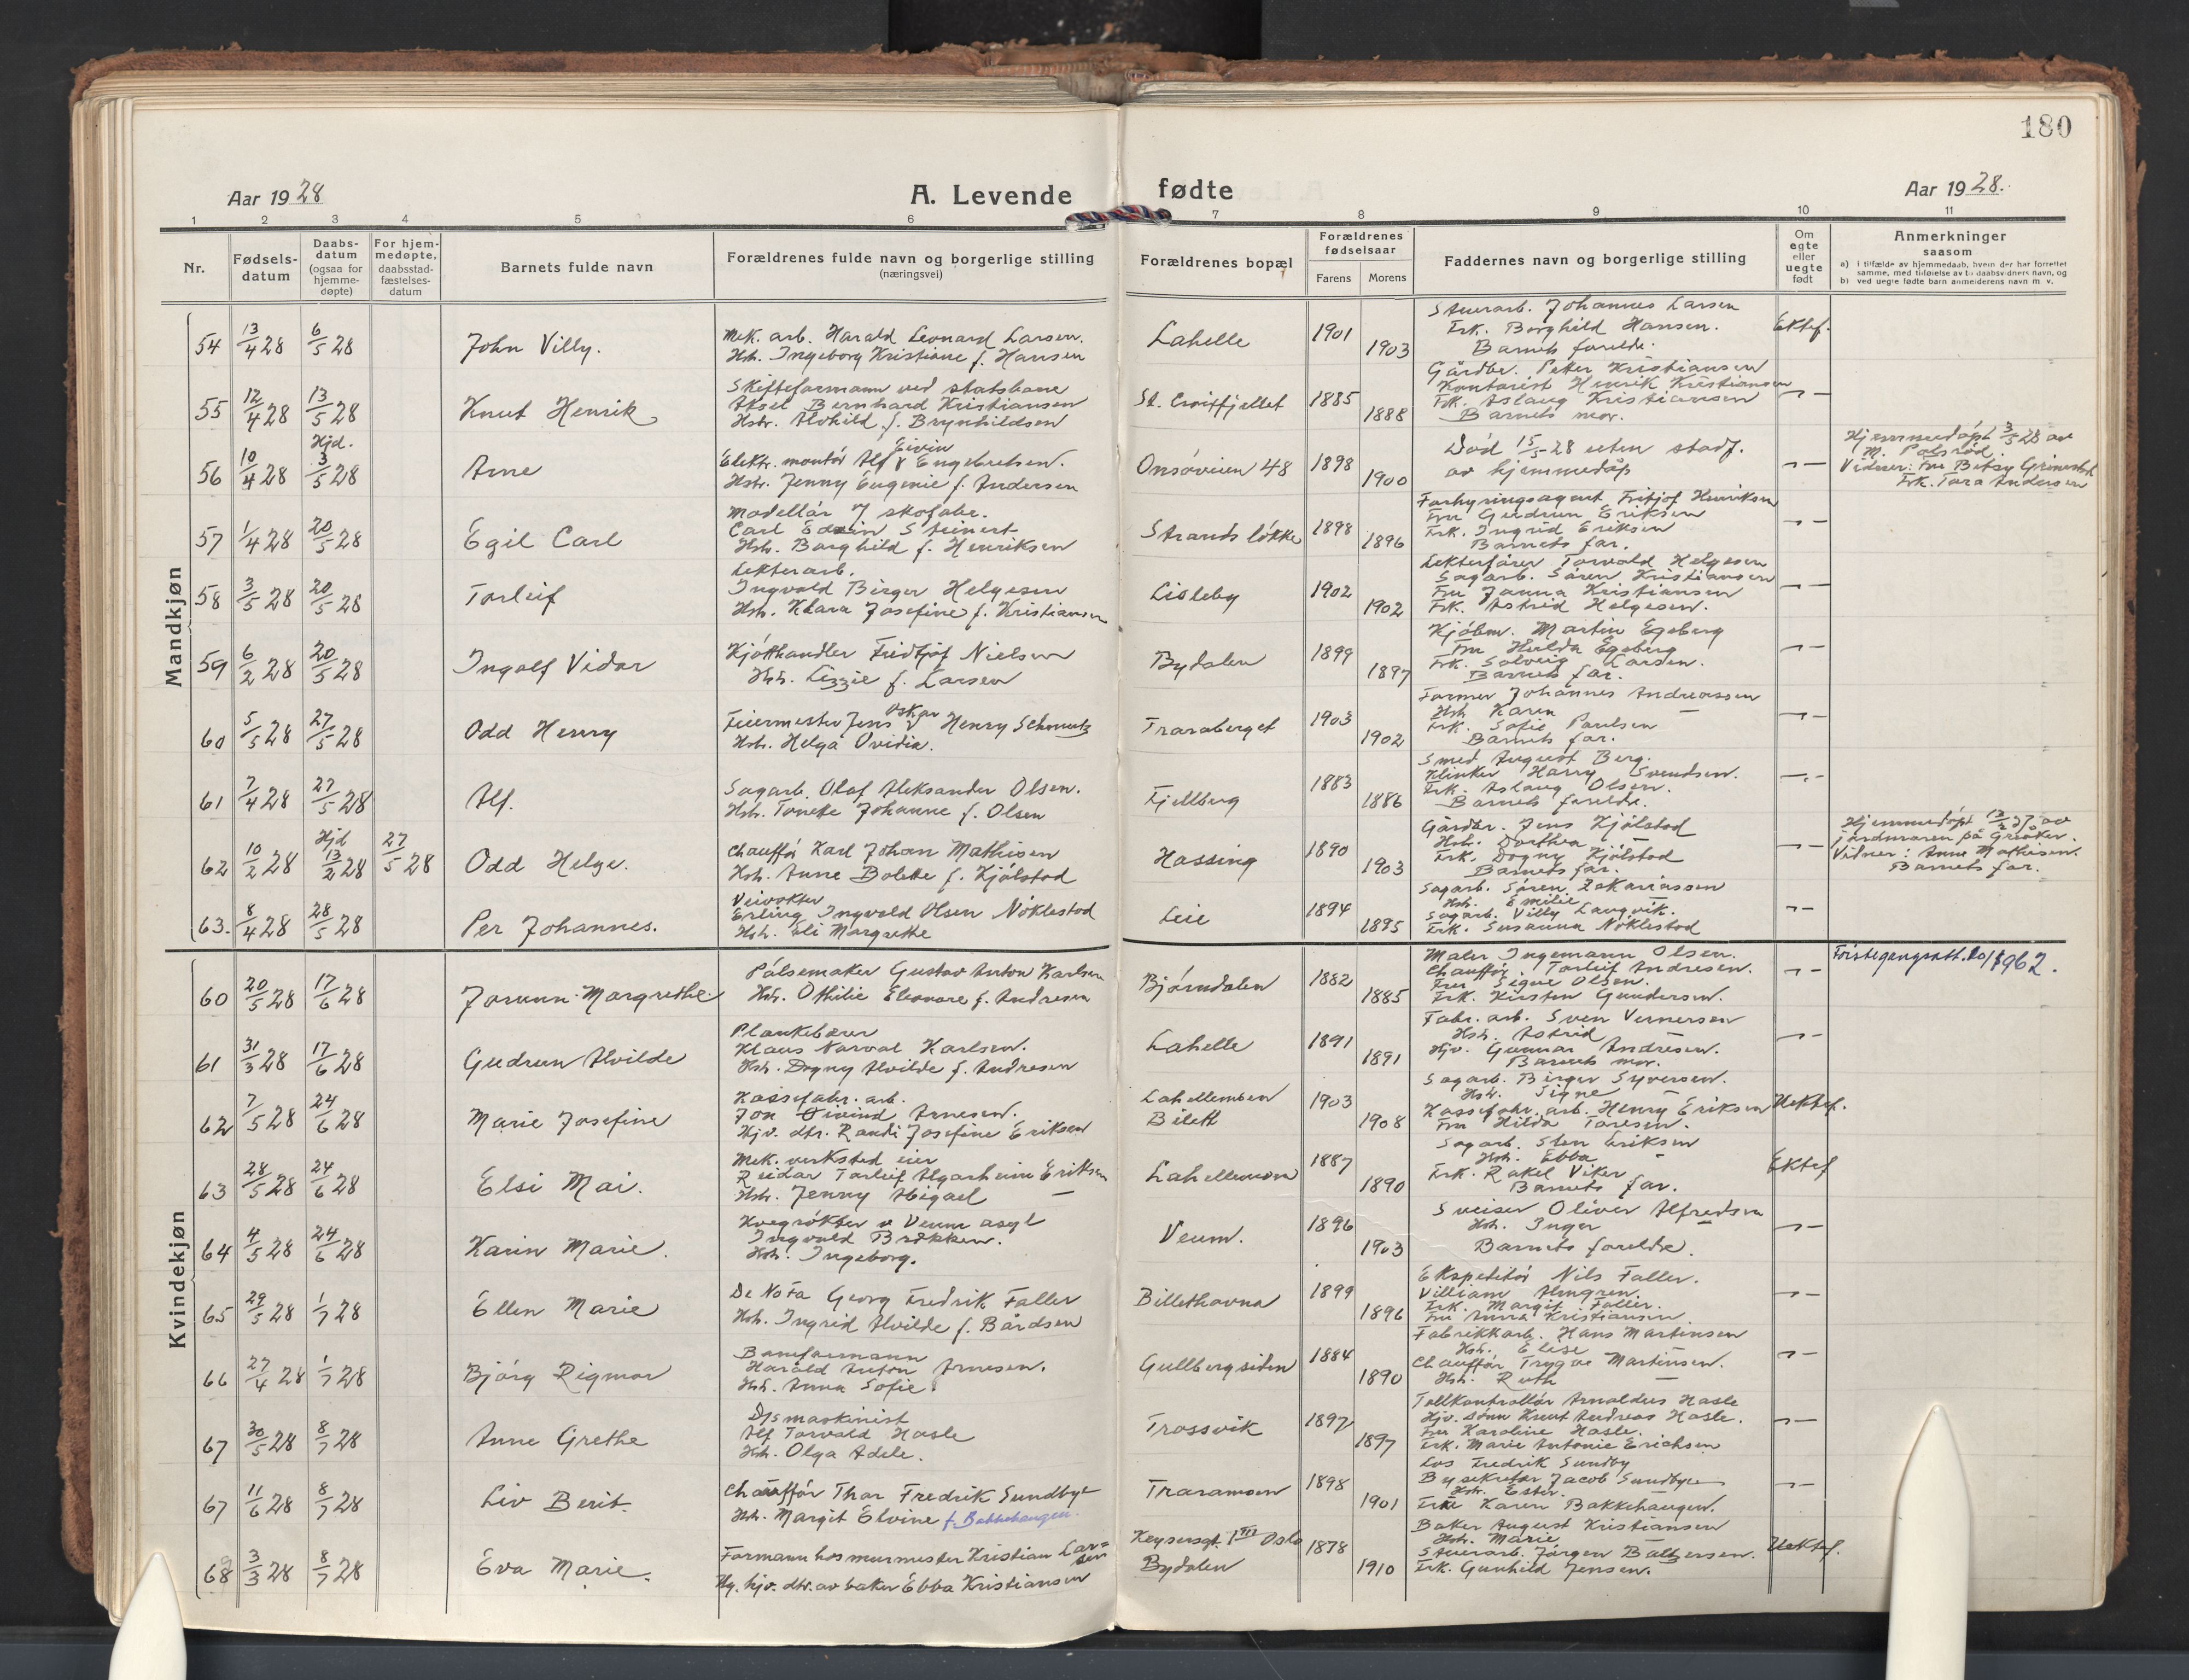 180
Aar 1928
A. Levende
fødte
Aar 1928.
1 2 3 4 5 6 7 8 9 10 11
Nr.
Fødsels-
datum
Daabs-
datum
(ogsaa for
hjemme-
døpte)
For hjem-
medøpte,
daabsstad-
fæstelses-
datum
Barnets fulde navn
Forældrenes fulde navn og borgerlige stilling
(næringsvei)
Forældrenes bopæl
Forældrenes
fødselsaar
Farens Morens
Faddernes navn og borgerlige stilling
Om
egte
eller
uegte
født
Anmerkninger
saasom
a) i tilfælde av hjemmedaab, hvem der har forrettet
samme, med tilføielse av to daabsvidners navn, og
b) ved uegte fødte barn anmelderens navn m. v.
Mandkjøn
54 13/4 28 6/5 28 John Villy.
Mek. arb. Harald Leonard Larsen.
Hstr. Ingeborg Kristiane f. Hansen
Lahelle 1901 1903
Stuerarb. Johannes Larsen
Frk. Borghild Hansen.
Barnets forelde.
Ektef.
55 12/4 28 13/5 28 Knut Henrik
Skifteformann ved statsbane
Aksel Bernhard Kristiansen
Hstr. Alvhild f. Brynhildsen
St. Croixfjellet 1885 1888
Gårdbr. Peter Kristiansen
Kontorist Henrik Kristiansen
Frk. Aslaug Kristiansen
Barnets mor.
56 10/4 28 Hjd. 3/5 28 Arne
Eivin
Elektr. montör Alf Engebretsen.
Hstr. Jenny Eugenie f. Andersen
Onsöveien 48 1898 1900
Död 15/5-28 uten stadf.
av hjemmedåp
Hjemmedöpt 3/5 28 av
M. Palsröd.
Vidner: Fru Betsy Grimestad
Frk. Tora Andersen
57 1/4 28 20/5 28 Egil Carl
Modellör J skofabr.
Carl Edvin Steinert
Hstr. Borghild f. Henriksen
Strandsløkke 1898 1896
Forhyringsagent Fritjof Henriksen
Fru Gudrun Eriksen
Frk. Ingrid Eriksen
Barnets far.
58 3/5 28 20/5 28 Torleif
Lekterarb.
Ingvald Birger Helgesen
Hstr. Klara Josefine f. Kristiansen
Lisleby 1902 1902
Lekterförer Torvald Helgesen
Sagarb. Sören Kristiansen
Fru Janna Kristiansen
Frk. Astrid Helgesen.
59 6/2 28 20/5 28 Ingolf Vidar
Kjötthandler Fridtjof Nielsen
Hstr. Lizzie f. Larsen
Bydalen 1899 1897
Kjöbm. Martin Egeberg
Fru Hulda Egeberg
Frk. Solveig Larsen.
Barnets far.
60 5/5 28 27/5 28 Odd Henry
Oskar
Feiermester Jens Henry Schmutz
Hstr. Helga Ovidia.
Traraberget 1903 1902
Former Johannes Andreassen
Hstr. Karen
Frk. Sofie Paulsen
Barnets far.
61 7/4 28 27/5 28 Alf.
Sagarb. Olaf Aleksander Olsen.
Hstr. Tonette Johanne f. Olsen
Fjellberg 1883 1886
Smed August Berg.
Klinker Harry Svendsen.
Frk. Aslaug Olsen.
Barnets forelde.
62 10/2 28 Hjd 13/2 28 27/5 28 Odd Helge.
Chaufför Karl Johan Mathisen
Hstr. Anne Bolette f. Kjölstad
Hassing 1890 1903
Gårdbr. Jens Kjölstad
Hstr. Dorthea
Frk. Dagny Kjölstad
Barnets far.
Hjemmedöpt 13/2 27 av
jordmoren på Greåker.
Vidner: Anne Mathisen.
Barnets far.
63. 8/4 28 28/5 28 Per Johannes.
Veivokter
Erling Ingvald Olsen Nöklestad
Hstr. Eli Margrethe
Leie 1894 1895
Sagarb. Sören Zakariassen
Hstr. Emilie
Sagarb. Villy Langvik.
Frk. Susanna Nöklestad
Kvindekjøn
60 20/5 28 17/6 28 Jorunn Margrethe
Pölsemaker Gustav Anton Karlsen
Hstr. Othilie Eleonore f. Andresen
Bjørndalen 1882 1885
Maler Ingemann Olsen.
Chaufför Torleif Andresen.
Fru Signe Olsen.
Frk. Kirsten Gundersen.
Förstegangsatt. 1962.
61 31/3 28 17/6 28 Gudrun Alvilde
Plankebærer
Klaus Narval Karlsen.
Hstr. Dagny Alvilde f. Andresen
Lahelle 1891 1891
Fabr. arb. Sven Vernersen
Hstr. Astrid
Hjv. Gunnar Andresen.
Barnets mor.
62 7/5 28 24/6 28 Marie Josefine
Kassefabr. arb.
Jon Øivind Arnesen.
Hjv. dtr. Randi Josefine Eriksen
Lahellemoen
Bilett 1903 1908
Sagarb. Birger Syversen.
Hstr. Signe
Kassefabr. arb. Henry Eriksen
Fru Hilda Toresen.
Uektef.
63 28/5 28 24/6 28 Elsi Mai.
Mek. verksted eier
Reidar Torleif Algarheim Eriksen
Hstr. Jenny Abigael
Lahellemoen 1887 1890
Sagarb. Sten Eriksen
Hstr. Ebba
Frk. Rakel Viker
Barnets far.
Ektef
64 4/5 28 24/6 28 Karin Marie.
Kvegrökter v Veum asyl
Ingvald Brekken.
Hstr. Ingeborg.
Veum. 1896 1903
Sveiser Oliver Alfredsen
Hstr. Inger
Barnets forelde.
65 29/5 28 1/7 28 Ellen Marie
De NoFa Georg Fredrik Faller
Hstr. Ingrid Alvilde f. Bårdsen
Billethavna 1899 1896
Ekspeditör Nils Faller.
Villiam Almgren.
Frk. Margit Faller.
Fru Anna Kristiansen
66 27/4 28 1/7 28 Bjørg Rigmor
Baneformann
Harald Anton Arnesen.
Hstr. Anna Sofie
Gullbergsiden 1884 1890
Fabrikkarb. Hans Martinsen
Hstr. Elise
Chauffør Trygve Martinsen.
Hstr. Ruth
67 30/5 28 8/7 28 Anne Grethe
D/S maskinist
Alf Torvald Hasle
Hstr. Olga Adele.
Trossvik 1897 1897
Tollkontrollör Arnoldus Hasle
Hjv. sønn Knut Andreas Hasle.
Fru Karoline Hasle.
Frk. Marie Antonie Erichsen
67 11/6 28 8/7 28 Liv Berit.
Chauffør Thor Fredrik Sundbye
Hstr. Margit Elvine f. Bakkehaugen.
Traramoen 1898 1901
Los Fredrik Sundby
Bysekretær Jacob Sundbye
Hstr. Ester.
Frk Karen Bakkehaugen.
68 3/3 28 8/7 28 Eva Marie.
Formann hos murmester Kristian Lar=
sen
Ug. hjv. dtr. av baker Ebba Kristiansen
Keysersgt. 1 III Oslo
Bydalen 1878 1910
Baker August Kristiansen
Hstr. Marie
Stuerarb. Jörgen Baltzersen.
Frk. Gunhild Jensen.
Uektef.